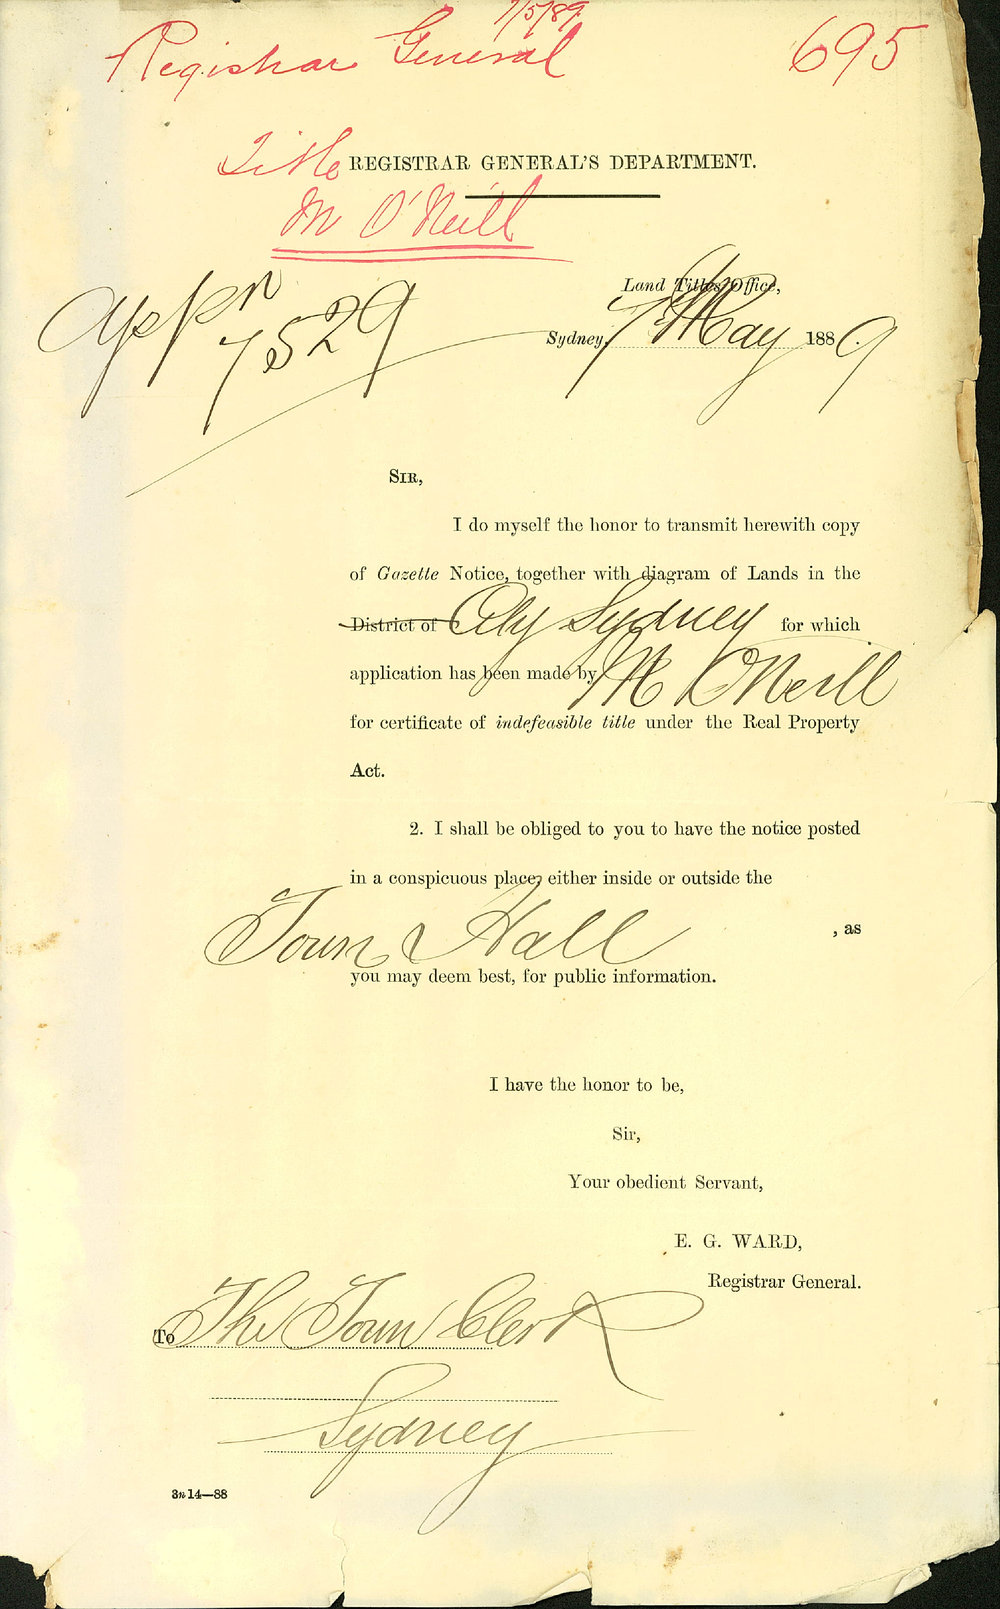 7/5/89
Registrar General 695
Title REGISTRAR GENERAL'S DEPARTMENT.
M O'Neill
Appn 7529
Land Titles Office,
Sydney, 7 May 1889.
SIR,
I do myself the honor to transmit herewith copy
of Gazette Notice, together with diagram of Lands in the
District of City Sydney for which
application has been made by M O'Neill
for certificate of indefeasible title under the Real Property
Act.
2. I shall be obliged to you to have the notice posted
in a conspicuous place, either inside or outside the
Town Hall , as
you may deem best, for public information.
I have the honor to be,
Sir,
Your obedient Servant,
E. G. WARD,
Registrar General.
To The Town Clerk
Sydney
3n14—88